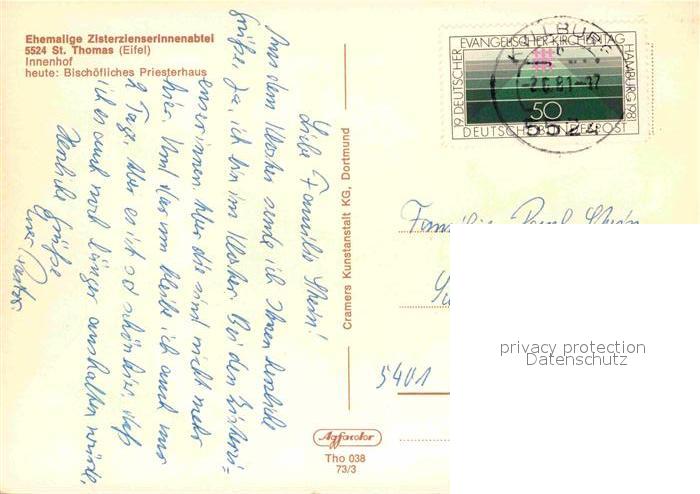 Ehemalige Zisterzienserinnenabtei
5524 St. Thomas (Eifel)
Innenhof
heute: Bischöfliches Priesterhaus
Liebe Familie
Aus dem Kloster sende ich Ihnen herzliche
Grüße. Ja, ich bin im Kloster. Bei den Zisterzi=
enserinnen. Aber die sind nicht mehr
hier. Und darum bleibe ich auch nur
2 Tage. Aber es ist so schön hier, daß
ich es auch noch länger aushalten würde.
Herzliche Grüße
Cramers Kunstanstalt KG, Dortmund
Agfacolor
Tho 038
73/3
19. DEUTSCHER EVANGELISCHER KIRCHENTAG HAMBURG 1981
50
DEUTSCHE BUNDESPOST
KYLLBURG
5524
Familie Paul
5401
privacy protection
Datenschutz